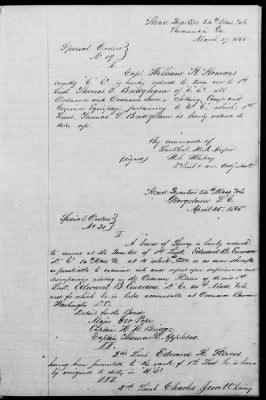 Head Quarters 54th Mass Vols
Savannah Ga.
March 27 1865
Special Orders }
No 19 }
I.
Capt. William H. Homans
comdg "C" Co is hereby ordered to turn over to 1st
Lieut. Thomas L. Bridgham of "C" Co all
Ordnance and Ordnance Stores, Clothing Camp and
Garrison Equipage pertaining to "C" Co, which 1st
Lieut. Thomas L. Bridgham is hereby ordered to
take up.
By command of
Lieut Col. H. N. Hooper
(signed)
2d Lieut & Adjutant
Head Quarters 54th Mass Vols
Georgetown S.C.
April 25 1865
Special Orders }
No 20 }
I
A board of Survey is hereby ordered
to convene at the Quarters of 1st Lieut. Edward B. Emerson
Co 54th Mass Vols at o'clock, or as soon thereafter
as practicable to examine into and report upon
discrepancies existing in the Ordnance Returns of
Lieut. Edward B. Emerson Co 54 Mass Vols
and for which he is held accountable at Ordnance Bureau
Washington D.C.
Detail for the Board
Major Geo Pope
Captain W. H. Bridge
Captain Thomas L. Appleton
II.
2nd Lieut Edward L. Stevens
having been promoted to the rank of 1st Lieut. he is hereby
assigned to duty in "H" Co
III.
2nd Lieut. Charles Jewett having